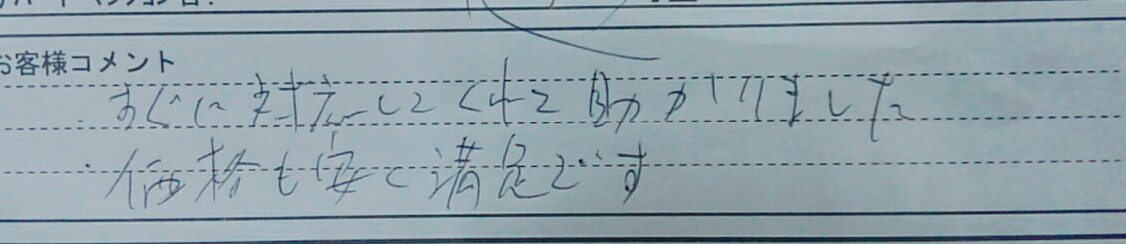 お客様コメント
すぐに対応してくれて助かりました
価格も安く満足です